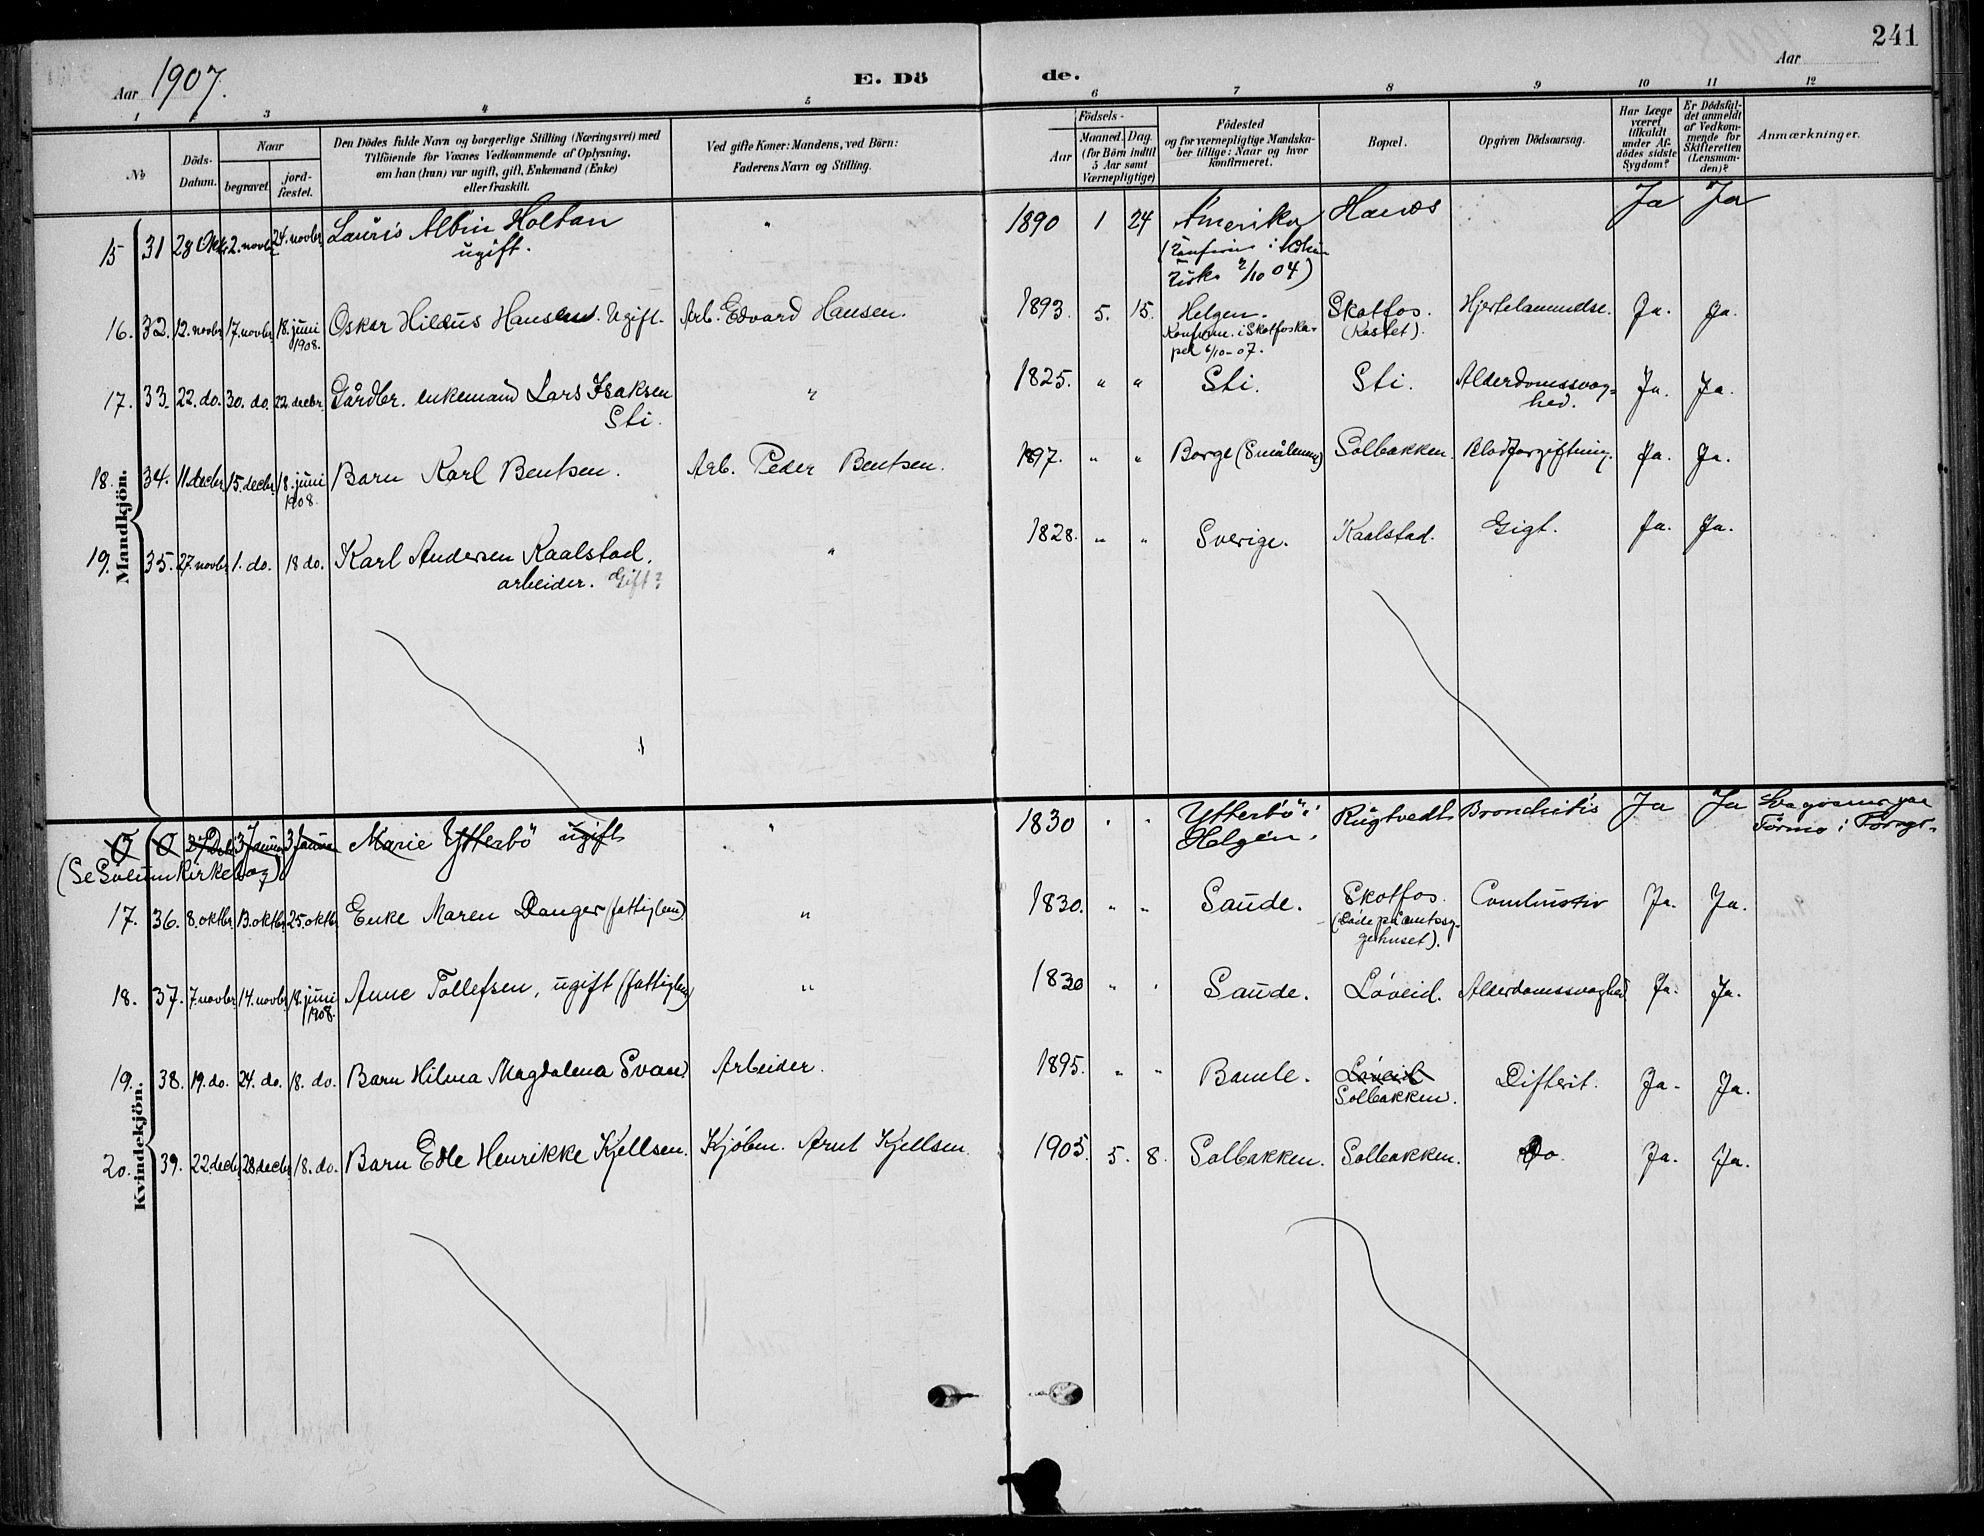 241
Aar 1907.
E. Dö
de.
Aar
1
2
3
4
5
6
7
8
9
10
11
12
№
Döds-
Datum.
Naar
begravet
jord-
fæstet.
Den Dödes fulde Navn og borgerlige Stilling (Næringsvei) med
Tilföiende for Voxnes Vedkommende af Oplysning,
om han (hun) var ugift, gift, Enkemand (Enke)
eller fraskilt.
Ved gifte Koner: Mandens, ved Börn:
Faderens Navn og Stilling.
Födsels-
Aar
Maaned. Dag.
(for Börn indtil
5 Aar samt
Værnepligtige)
Födested
og for værnepligtige Mandska-
ber tillige: Naar og hvor
konfirmeret.
Bopæl.
Opgiven Dödsaarsag.
Har Læge
været
tilkaldt
under Af-
dödes sidste
Sygdom?
Er Dödsfal-
det anmeldt
af Vedkom-
mende for
Skifteretten
(Lensman-
den)?
Anmærkninger.
Mandkjön.
15 31 28 Okt. 2. novbr 24. novbr Lauris Albin Holtan " 1890 1 24 Amerika Ja Ja
ugift.
2/10 04)
16. 32. 12. novbr 17. novbr 18. juni Oskar Hildus Hansen. Ugift. Arb. Edvard Hansen. 1893. 5. 15. Helgen. Skotfos. Ja. Ja.
1908.
Konfirm. i Skotfoska- (Kastet).
pel 6/10-07.
17. 33. 22. do. 30. do. 22. decbr. Gårdbr. enkemand Lars Isaksen " 1825. " " Sti. Sti. Alderdomssvag- Ja. Ja.
Sti. hed.
18. 34. 11. decbr. 15. decbr. 18. juni Barn Karl Bentsen. Arb. Peder Bentsen. 1897. " " Borge (Smålenene) Solbakken. Blodforgiftning. Ja. Ja.
1908.
19. 35. 27. novbr 1. do. 18 do. Karl Andersen Kaalstad. " 1828. " " Sverige. Kaalstad. Gigt. Ja. Ja.
arbeider. Gift?
Kvindekjön.
0 0 3 Janua 3 Janua Marie Ytterbö ugift " 1830 " " Ytterbö i Rugtvedt Bronchitis Ja Ja
Helgen.
(Se Solum Kirkebog)
17. 36. 8. oktbr. 13. oktbr. 25. oktbr. Enke Maren Danger (fattiglem) " 1830. " " Saude. Skotfos. Ja. Ja.
(Døde på amtssy-
gehuset).
18. 37. 7. novbr 14. novbr 18. juni Anne Tollefsen, ugift (fattiglem) " 1830 " " Saude. Løveid. Alderdomssvaghed Ja. Ja.
1908.
19. 38. 19. do. 24. do. 18. do. Barn Hilma Magdalena Svan. Arbeider. 1895. " " Bamle. Løveid Difterit. Ja. Ja.
Solbakken.
20. 39. 22 decbr. 28 decbr. 18. do. Barn Edle Henrikke Kjellsen. Kjøbm. Arnt Kjellsen. 1905. 5. 8. Solbakken. Solbakken. Do. Ja. Ja.